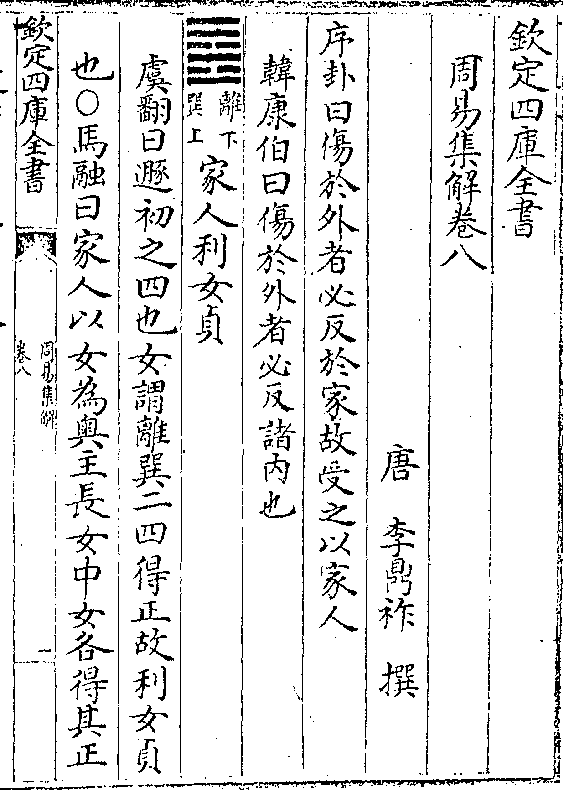 欽定四庫全書
周易集解卷八
唐 李鼎祚 撰
序卦曰傷於外者必反於家故受之以家人
韓康伯曰傷於外者必反諸内也
離下
巽上
家人利女貞
虞翻曰遯初之四也女謂離巽二四得正故利女貞
也○馬融曰家人以女為奥主長女中女各得其正
欽定四庫全書
周易集解
卷八
一